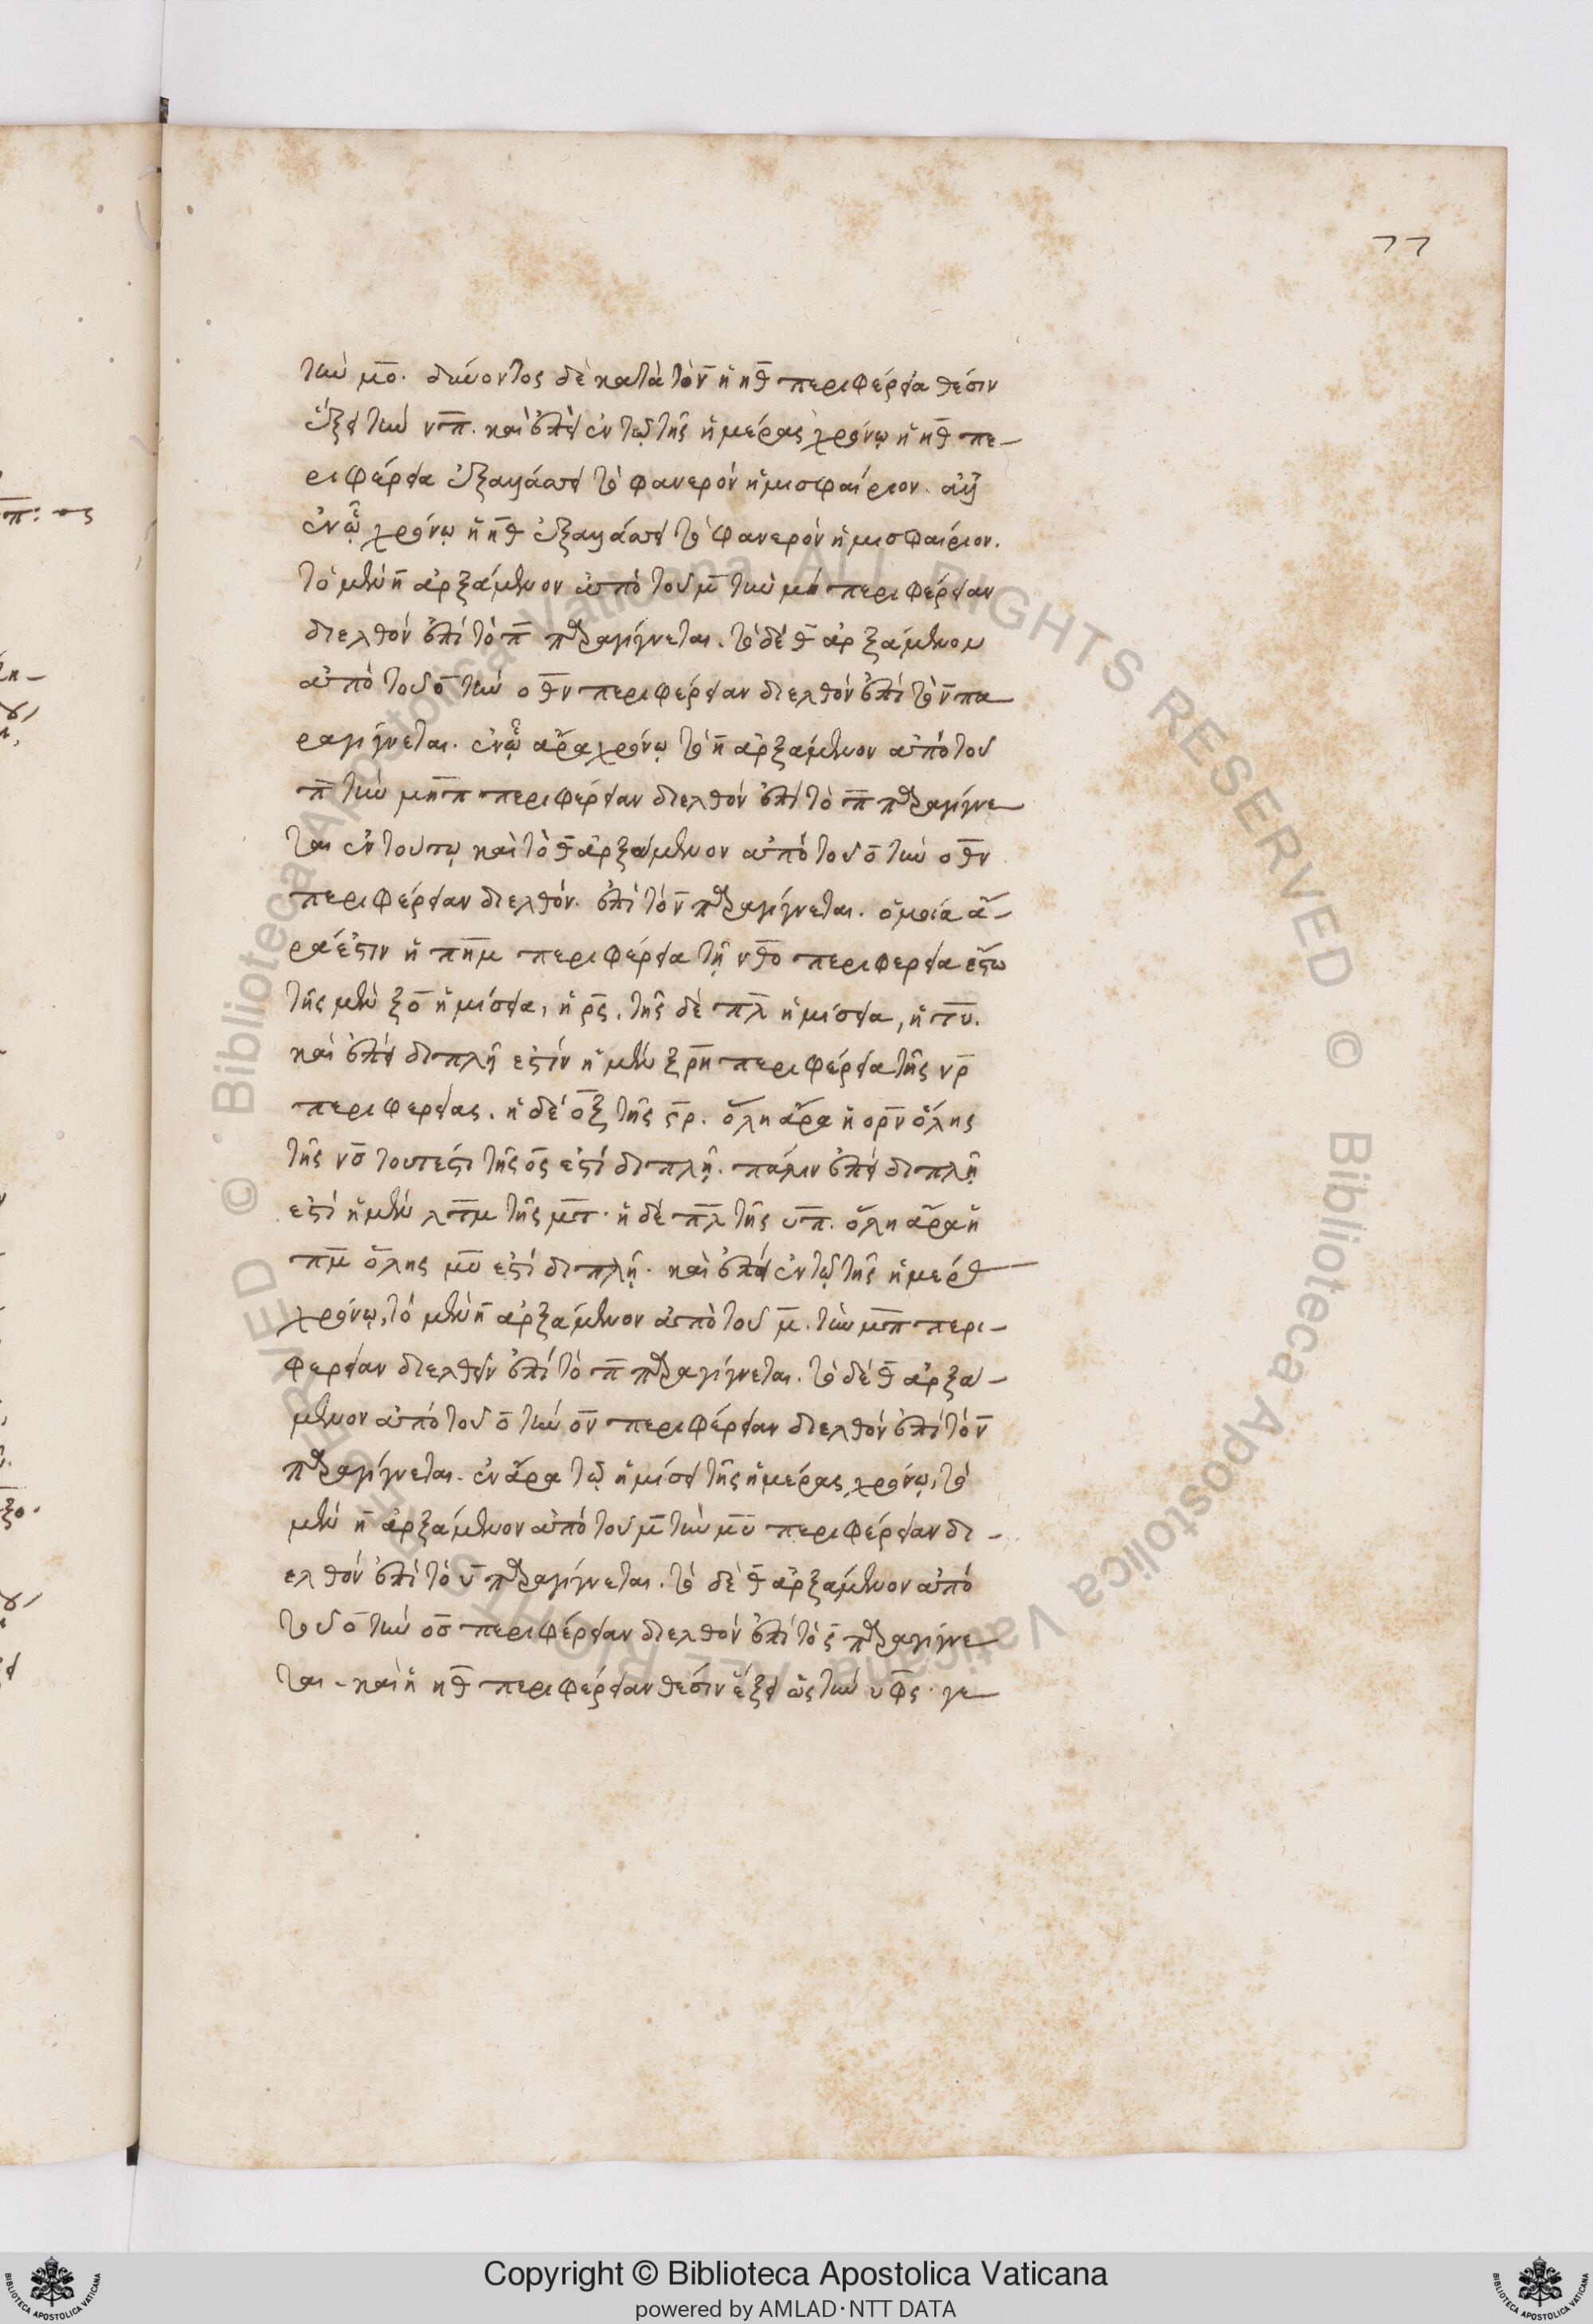 77
τὴν μ̅ο̅. δύνοντος δὲ κατὰ τὸ ν̅ ἡ η̅θ̅ περιφέρεια θέσιν
ἕξει τὴν ν̅π̅. καὶ ἐπεὶ ἐν τῷ τῆς ἡμέρας χρόνῳ ἡ η̅θ̅ πε-
ριφέρεια ἐξαλλάσσει τὸ φανερὸν ἡμισφαίριον. ἀλλ'
ἐν ᾧ χρόνῳ ἡ η̅θ̅ ἐξαλλάσσει τὸ φανερὸν ἡμισφαίριον.
τὸ μὲν η̅ ἀρξάμενον ἀπὸ τοῦ μ̅ τὴν περιφέρειαν
διελθὸν ἐπὶ τὸ π̅ παραγίγνεται. τὸ δὲ θ̅ ἀρξάμενον
ἀπὸ τοῦ ο̅ τὴν ο̅θ̅ν̅ περιφέρειαν διελθὸν ἐπὶ τὸ ν̅ πα
ραγίγνεται. ἐν ᾧ ἄρα χρόνῳ τὸ η̅ ἀρξάμενον ἀπὸ τοῦ
π̅ τὴν μ̅η̅π̅ περιφέρειαν διελθὸν ἐπὶ τὸ π̅ παραγίγνε
ται ἐν τούτῳ καὶ τὸ θ̅ ἀρξάμενον ἀπὸ τοῦ ο̅ τὴν ο̅θ̅ν̅
περιφέρειαν διελθὸν. ἐπὶ τὸ ν̅ παραγίγνεται. ὁμοία ἄ-
ρα ἐστιν ἡ π̅η̅μ̅ περιφέρεια τῇ ν̅θ̅ο̅ περιφερεία ἔστω
τῆς μὲν ξ̅ο̅ ἡμίσεια, ἡ ρ̅ς̅. τῆς δὲ π̅λ̅ ἡμίσεια, ἡ π̅υ̅.
καὶ ἐπεὶ διπλῆ ἐστὶν ἡ μὲν ξ̅ρ̅η̅ περιφέρεια τῆς ν̅ρ̅
περιφερείας. ἡ δὲ ο̅ξ̅ τῆς ς̅ρ̅. ὅλη ἄρα ἡ ο̅ρ̅ν̅ ὅλης
τῆς ν̅σ̅ τουτέστι τῆς ο̅ς̅ ἐστὶ διπλῆ. πάλιν ἐπεὶ διπλῆ
ἐστὶ ἡ μὲν λ̅π̅μ̅ τῆς μ̅π̅. ἡ δὲ π̅λ̅ τῆς υ̅π̅. ὅλη ἄρα ἡ
π̅μ̅ ὅλης μ̅υ̅ ἐστὶ διπλῆ. καὶ ἐπεὶ ἐν τῷ τῆς ἡμέρας
χρόνῳ, τὸ μὲν η̅ ἀρξάμενον ἀπὸ τοῦ μ̅. τὴν μ̅π̅ περι-
φερείαν διελθὸν ἐπὶ τὸ π̅ παραγίγνεται. τὸ δὲ θ̅ ἀρξα-
μενον ἀπὸ τοῦ ο̅ τὴν ο̅ν̅ περιφέρειαν διελθὸν ἐπὶ τὸ ν̅
παραγίγνεται. ἐν ἄρα τῷ ἡμίσει τῆς ἡμέρας χρόνῳ, τὸ
μὲν η̅ ἀρξάμενον ἀπὸ τοῦ μ̅ τὴν μ̅υ̅ περιφέρειαν δι-
ελθὸν ἐπὶ τὸ υ̅ παραγίγνεται. τὸ δὲ θ̅ ἀρξάμενον ἀπὸ
τοῦ ο̅ τὴν ο̅σ̅ περιφέρειαν διελθὸν ἐπὶ τὸ ς̅ παραγίγνε
ται. καὶ ἡ η̅θ̅ περιφέρειαν θέσιν ἕξει ὡς τὴν γε
Copyright © Biblioteca Apostolica Vaticana
powered by AMLAD·NTT DATA